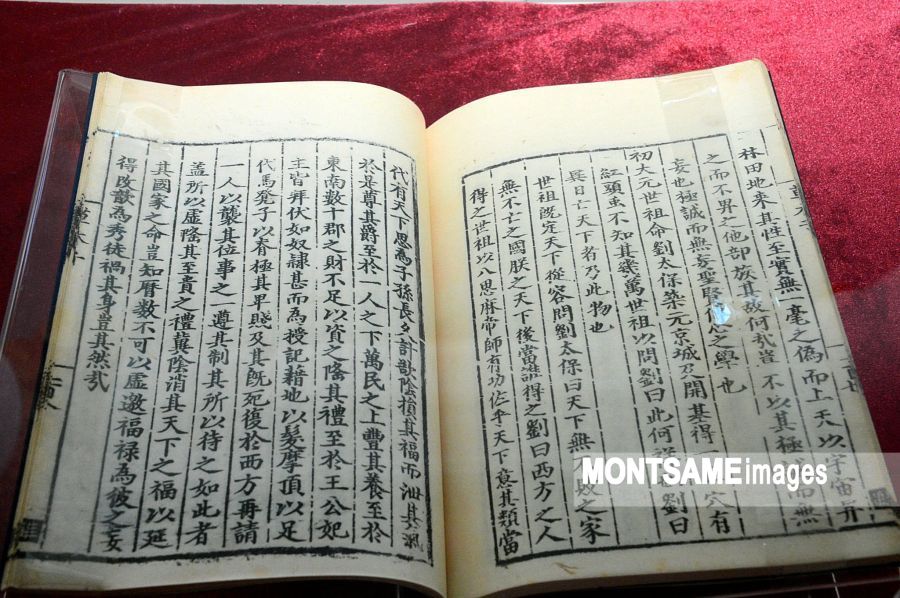 林田地来其性至實無一毫之偽而上天以宇宙畀
之而不畀之他部族其故何㢤豈不以其極而無
妄也極誠而無妄聖賢心之學也
初大元世祖命劉太保築元京城及開基得一穴有
紅頭虫不知其幾萬世祖以問劉曰此何劉曰
異日亡天下者乃此物也
世祖既定天下從容問劉太保曰天下無敗之家
無不亡之國朕之天下後當誰得之劉曰西方之人
得之世祖以八思麻帝師有功佐平天下意其類當
代有天下思為子孫長久計欲陰損其福而泄其氣
於是尊其爵至於一人之下萬民之上豊其養至於
東南數十郡之財不足以資之隆其禮至於王公妃
主皆拜伏如奴隷甚而為授記藉地以髮摩頂以足
代馬凳子以脊極其卑賤及其既死復於西方再請
一人以襲其位事之一遵其制其所以待之如此者
盖所以虚隆其至貴之禮冀陰消其天下之福以延
其國家之命豈知暦數不可以虚邀福禄為彼之妄
得改歆為秀徒禍其身豈其然㢤
MONTSAMEimages